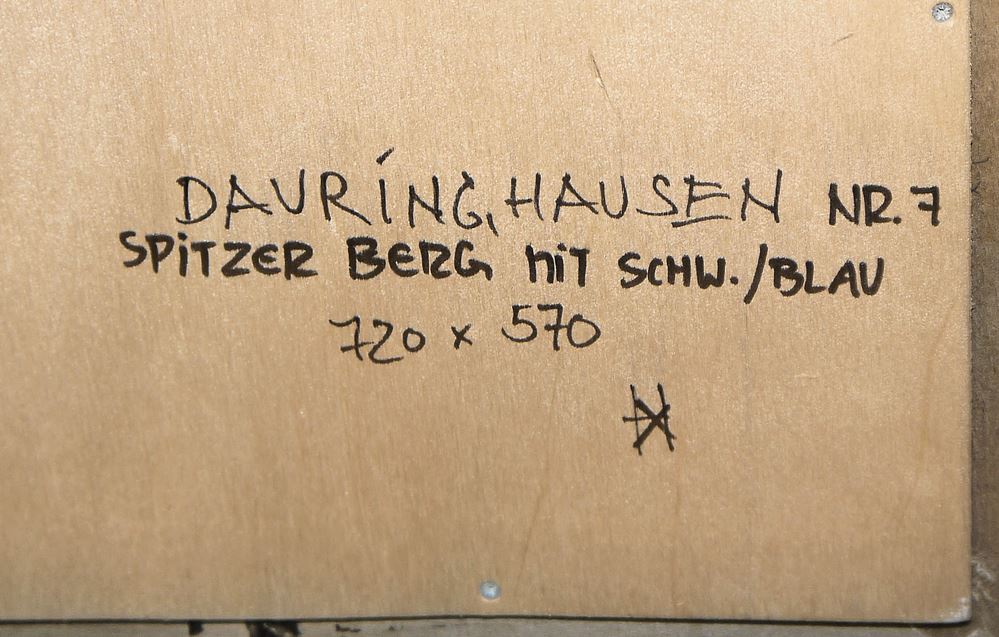 DAURING,HAUSEN NR. 7
SPITZER BERG MIT SCHW./BLAU
720 x 570